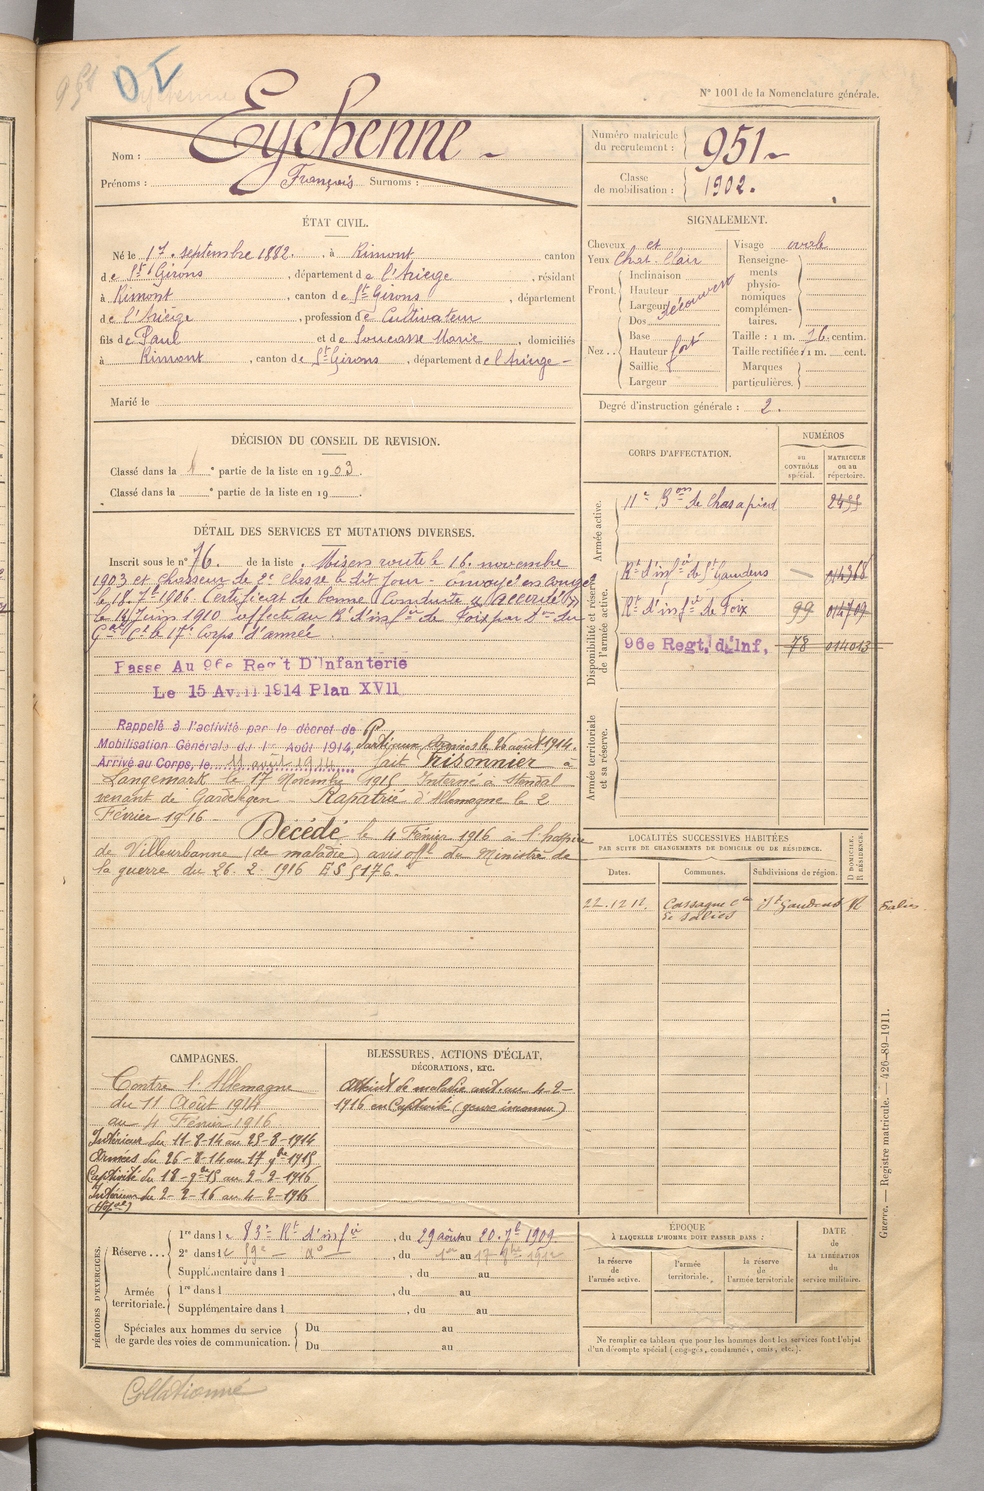 951
DI
N° 1001 de la Nomenclature générale.
Nom : Eychenne
Prénoms : François Surnoms :
Numéro matricule du recrutement : 951
Classe de mobilisation : 1902.
ÉTAT CIVIL.
Né le 17 septembre 1882, à Rimont canton
de St Girons, département de l'Ariège, résidant
à Rimont, canton de St Girons, département
de l'Ariège, profession de Cultivateur
fils de Paul et de Soucasse Marie, domiciliés
à Rimont, canton de St Girons, département de l'Ariège
Marié le
SIGNALEMENT.
Cheveux et
Yeux Chat. Clair
Front. Inclinaison
Hauteur
Largeur découvert
Nez.. Dos
Base
Hauteur fort
Saillie
Largeur
Visage ovale
Renseignements physionomiques complémentaires.
Taille : 1 m. 76 centim.
Taille rectifiée : 1 m. cent.
Marques particulières.
Degré d'instruction générale : 2.
DÉCISION DU CONSEIL DE REVISION.
Classé dans la 1e partie de la liste en 1903.
Classé dans la e partie de la liste en 19
CORPS D'AFFECTATION.
NUMÉROS
au CONTRÔLE spécial.
MATRICULE ou au répertoire.
Armée active.
11e Bon de Chas à pied 2499
Disponibilité et réserve de l'armée active.
Rt d'infie de St Gaudens 014368
Rt d'infie de Foix 99 014709
96e Regt. d'Inf, 78 014013
Armée territoriale et sa réserve.
DÉTAIL DES SERVICES ET MUTATIONS DIVERSES.
Inscrit sous le n° 76. de la liste. Mis en route le 16 novembre
1903 et chasseur de 2e classe le dit jour - envoyé en congé
le 18 7bre 1906. Certificat de bonne Conduite "accordé"
le 19 Juin 1910 affecté au Rt d'infie de Foix par Don du
Gal Ct le 17e Corps d'armée.
Passe Au 96e Reg't D'Infanterie
Le 15 Avril 1914 Plan XVII
Rappelé à l'activité par le décret de
Mobilisation Générale du 1er Août 1914,
Parti aux Armées le 26 août 1914.
Arrivé au Corps, le 11 août 1914 fait Prisonnier à
Langemark le 17 Novembre 1915 Interné à Stendal
venant de Gardelegen - Rapatrié d'Allemagne le 2
Février 1916
Décédé le 4 Février 1916 à l'hospice
de Villeurbanne (de maladie) avis offl du Ministre de
la guerre du 26.2.1916 ES 5176.
LOCALITÉS SUCCESSIVES HABITÉES
PAR SUITE DE CHANGEMENTS DE DOMICILE OU DE RÉSIDENCE.
Dates. Communes. Subdivisions de région. D DOMICILE. R RÉSIDENCE.
22.12.12. Cassagne Con de Salies St Gaudens R Salies
CAMPAGNES.
Contre l'Allemagne
du 11 Août 1914
au 4 Février 1916
Intérieur du 11-8-14 au 25-8-1914
Armées du 26-8-14 au 17 9bre 1915
Captivité du 18-9bre 15 au 2-2-1916
Intérieur du 2-2-16 au 4-2-1916
BLESSURES, ACTIONS D'ÉCLAT,
DÉCORATIONS, ETC.
Atteint de maladie ant. au 4-2-
1916 en Captivité (genre inconnu)
PÉRIODES D'EXERCICES.
Réserve... 1re dans le 83e Rt d'infie, du 29 août au 20 7bre 1909.
2e dans le 59e do, du 1er au 17 9bre 1912
Supplémentaire dans l , du au
Armée territoriale. 1re dans l , du au
Supplémentaire dans l , du au
Spéciales aux hommes du service de garde des voies de communication. Du au
Du au
ÉPOQUE
À LAQUELLE L'HOMME DOIT PASSER DANS :
la réserve de l'armée active.
l'armée territoriale.
la réserve de l'armée territoriale
DATE de LA LIBÉRATION du service militaire.
Ne remplir ce tableau que pour les hommes dont les services font l'objet
d'un décompte spécial (engagés, condamnés, omis, etc.).
Guerre. — Registre matricule. — 426-89-1911.
Collationné